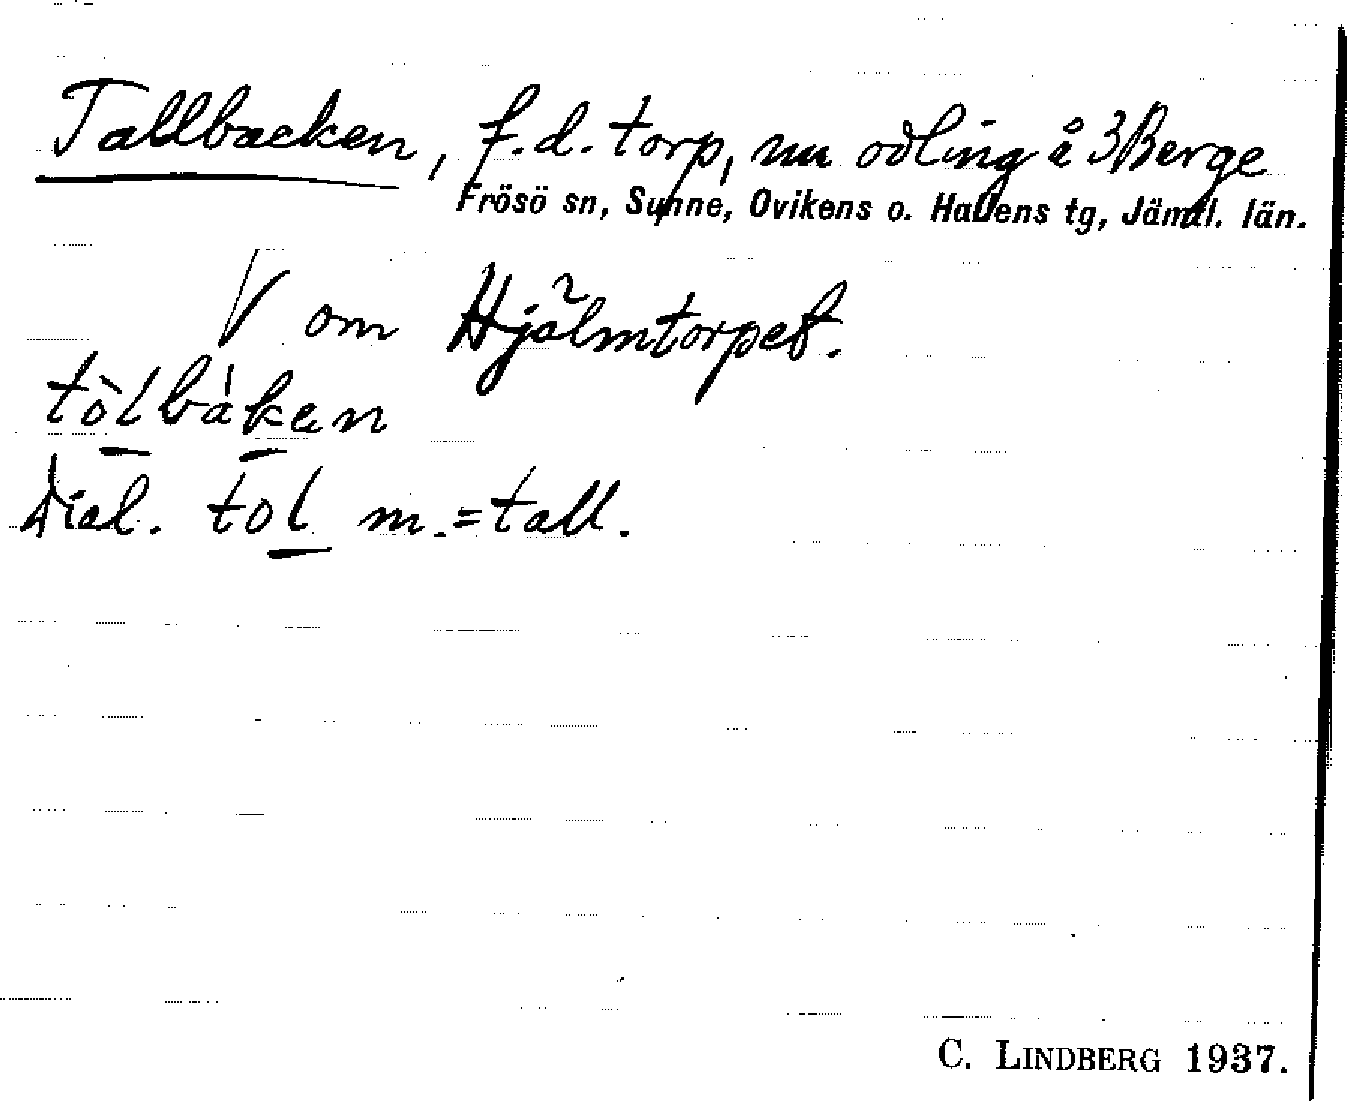 Tallbacken, f.d. torp, nu odling å 3Berge
Frösö sn, Sunne, Ovikens o. Hallens tg, Jämtl. län.
V om Hjälmtorpet.
tòlbáken
Dial. tol m. = tall.
C. LINDBERG 1937.